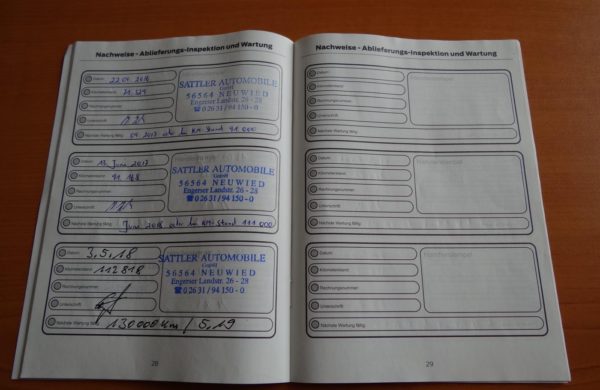 Nachweise - Ablieferungs-Inspektion und Wartung
Datum: 22.04.2016
Kilometerstand:
Rechnungsnummer:
Unterschrift:
SATTLER AUTOMOBILE
GmbH
56564 NEUWIED
Engerser Landstr. 26 - 28
☎ 0 26 31 / 94 150 - 0
Nächste Wartung fällig: 04 2017 oder bei KM-Stand 91 000
Datum: 14. Juni 2017
Kilometerstand: 91 168
Rechnungsnummer:
Unterschrift:
SATTLER AUTOMOBILE
GmbH
56564 NEUWIED
Engerser Landstr. 26 - 28
☎ 0 26 31 / 94 150 - 0
Nächste Wartung fällig: Juni 2018 oder bei KM-Stand 111 000
Datum: 3.5.18
Kilometerstand: 112818
Rechnungsnummer:
Unterschrift:
SATTLER AUTOMOBILE
GmbH
56564 NEUWIED
Engerser Landstr. 26 - 28
☎ 0 26 31 / 94 150 - 0
Nächste Wartung fällig: 130000 km / 5.19
28
Nachweise - Ablieferungs-Inspektion und Wartung
Datum:
Kilometerstand:
Rechnungsnummer:
Unterschrift:
Händlerstempel
Nächste Wartung fällig:
Datum:
Kilometerstand:
Rechnungsnummer:
Unterschrift:
Händlerstempel
Nächste Wartung fällig:
Datum:
Kilometerstand:
Rechnungsnummer:
Unterschrift:
Händlerstempel
Nächste Wartung fällig:
29